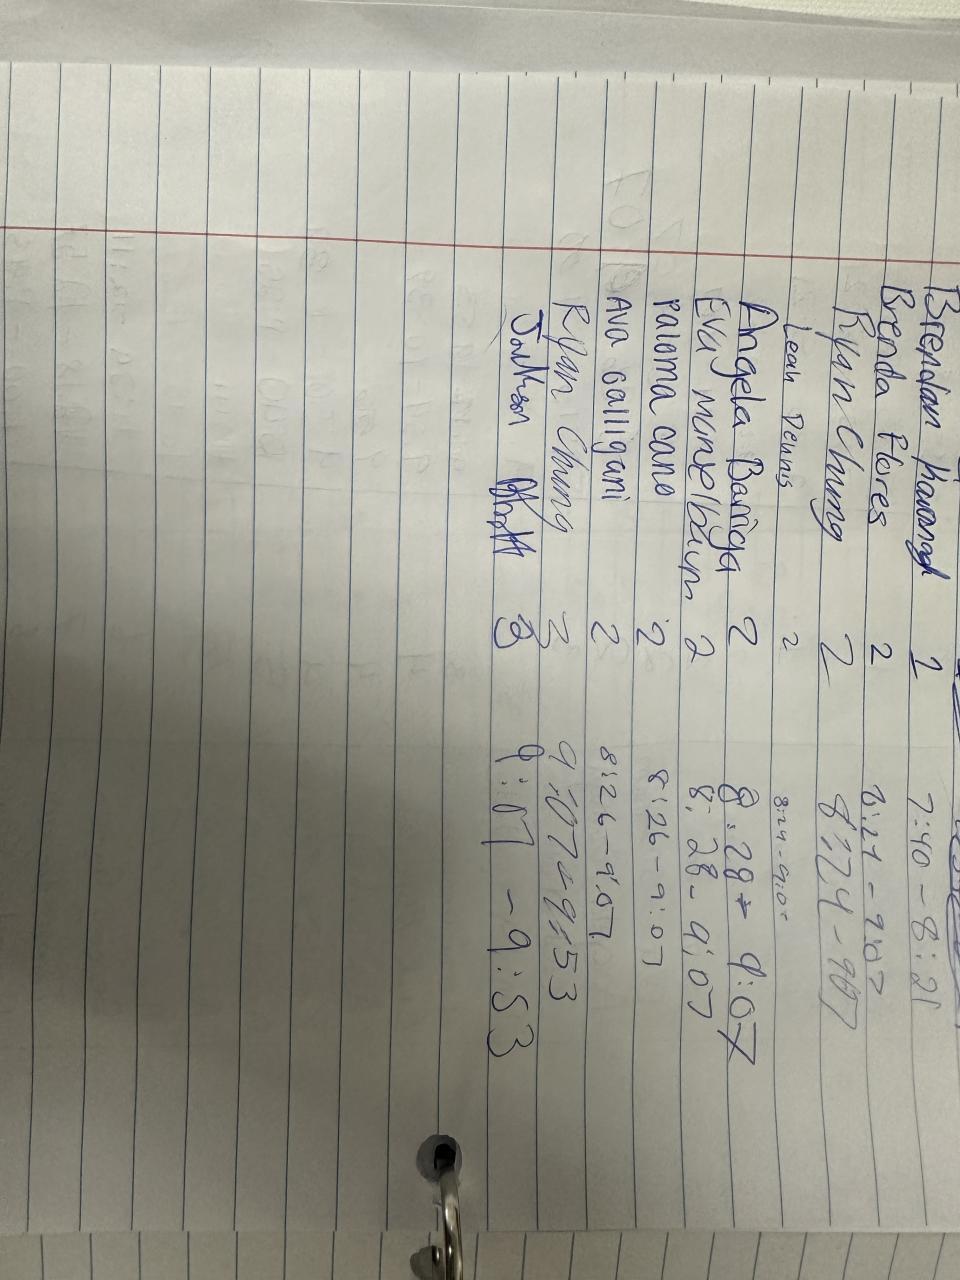 Brendan Kavanagh 1 7:40 - 8:21
Brenda Flores 2 8:21 - 9:07
Ryan Chung 2 8:24 - 907
Leah Dennis 2 8:24 - 9:07
Angela Barriga 2 8:28 - 9:07
Eva munzelbaum 2 8:28 - 9:07
Paloma cano 2 8:26 - 9:07
Ava Galligani 2 8:26 - 9:07
Ryan Chung 3 9:07 - 9:53
3 9:07 - 9:53